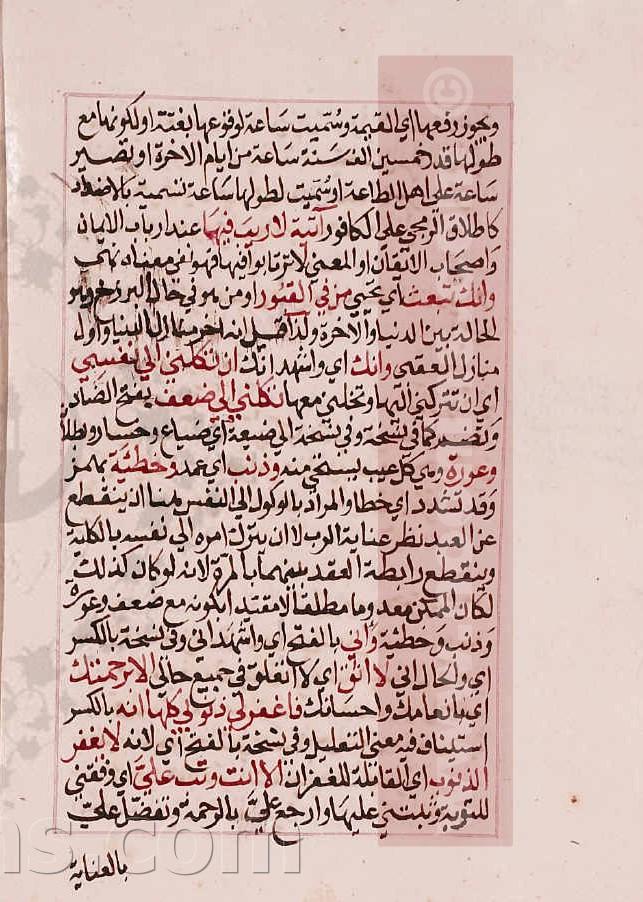 ويجوز رفعها اي القيمة وسميت ساعة لوقوعها بغتة او لكونها مع
طولها قدر خمسين الف سنة ساعة من ايام الاخرة او تصير
ساعة على اهل الطاعة او سميت لطولها ساعة تسمية بالاضداد
كاطلاق الزنجي على الكافور آتية لا ريب فيها عند ارباب الايمان
واصحاب الايقان او المعنى لا ترتابوا فيها فهو نفي معناه نهي
وانك تبعث اي تحيي من في القبور او من هو في حال البرزخ وهو
الحالة بين الدنيا والاخرة ولذا قيل انه اخر منازل الدنيا واول
منازل العقبى وانك اي واشهد انك ان تكلني الى نفسي
اي ان تتركني اليها وتخلني معها تكلني الى ضعف بفتح الضاد
وتضم كما في نسخة وفي نسخة الى ضيعة اي ضياع وخسار وبطلا
وعورة وهي كل عيب يستحي منه وذنب اي عمد وخطئية بهمز
وقد تشدد اي خطا والمراد بالوكول الى النفس هنا ان ينقطع
عن العبد نظر عناية الرب لا ان يترك امره الى نفسه بالكلية
وينقطع رابطة العقد بينهما بالمرة لانه لو كان كذلك
لكان الممكن معدوما مطلقا لا مقتدا بكونه مع ضعف وعورة
وذنب وخطئية واني بالفتح اي واشهد اني وفي نسخة بالكسر
اي والحال اني لا اثق اي لا اتعلق في جميع حالي الا برحمتك
اي بانعامك واحسانك فاغفر لي ذنوبي كلها انه بالكسر
استيناف فيه معنى التعليل وفي نسخة بالفتح اي لانه لا يغفر
الذنوب اي القابلة للغفران الا انت وتب علي اي وفقني
للتوبة وثبتني عليها وارجع علي بالرحمة وتفضل علي
بالعناية
ns.com